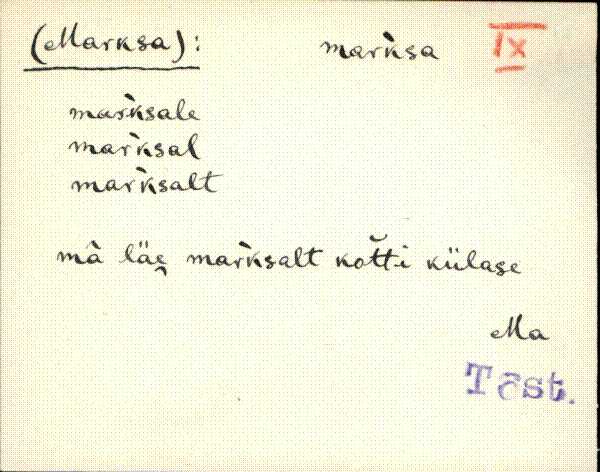 (Marksa): mar̀ksa IX
mar̀ksale
mar̀ksal
mar̀ksalt
mà läe̬ mar̀ksalt kott̆i külase
Ma
Tõst.